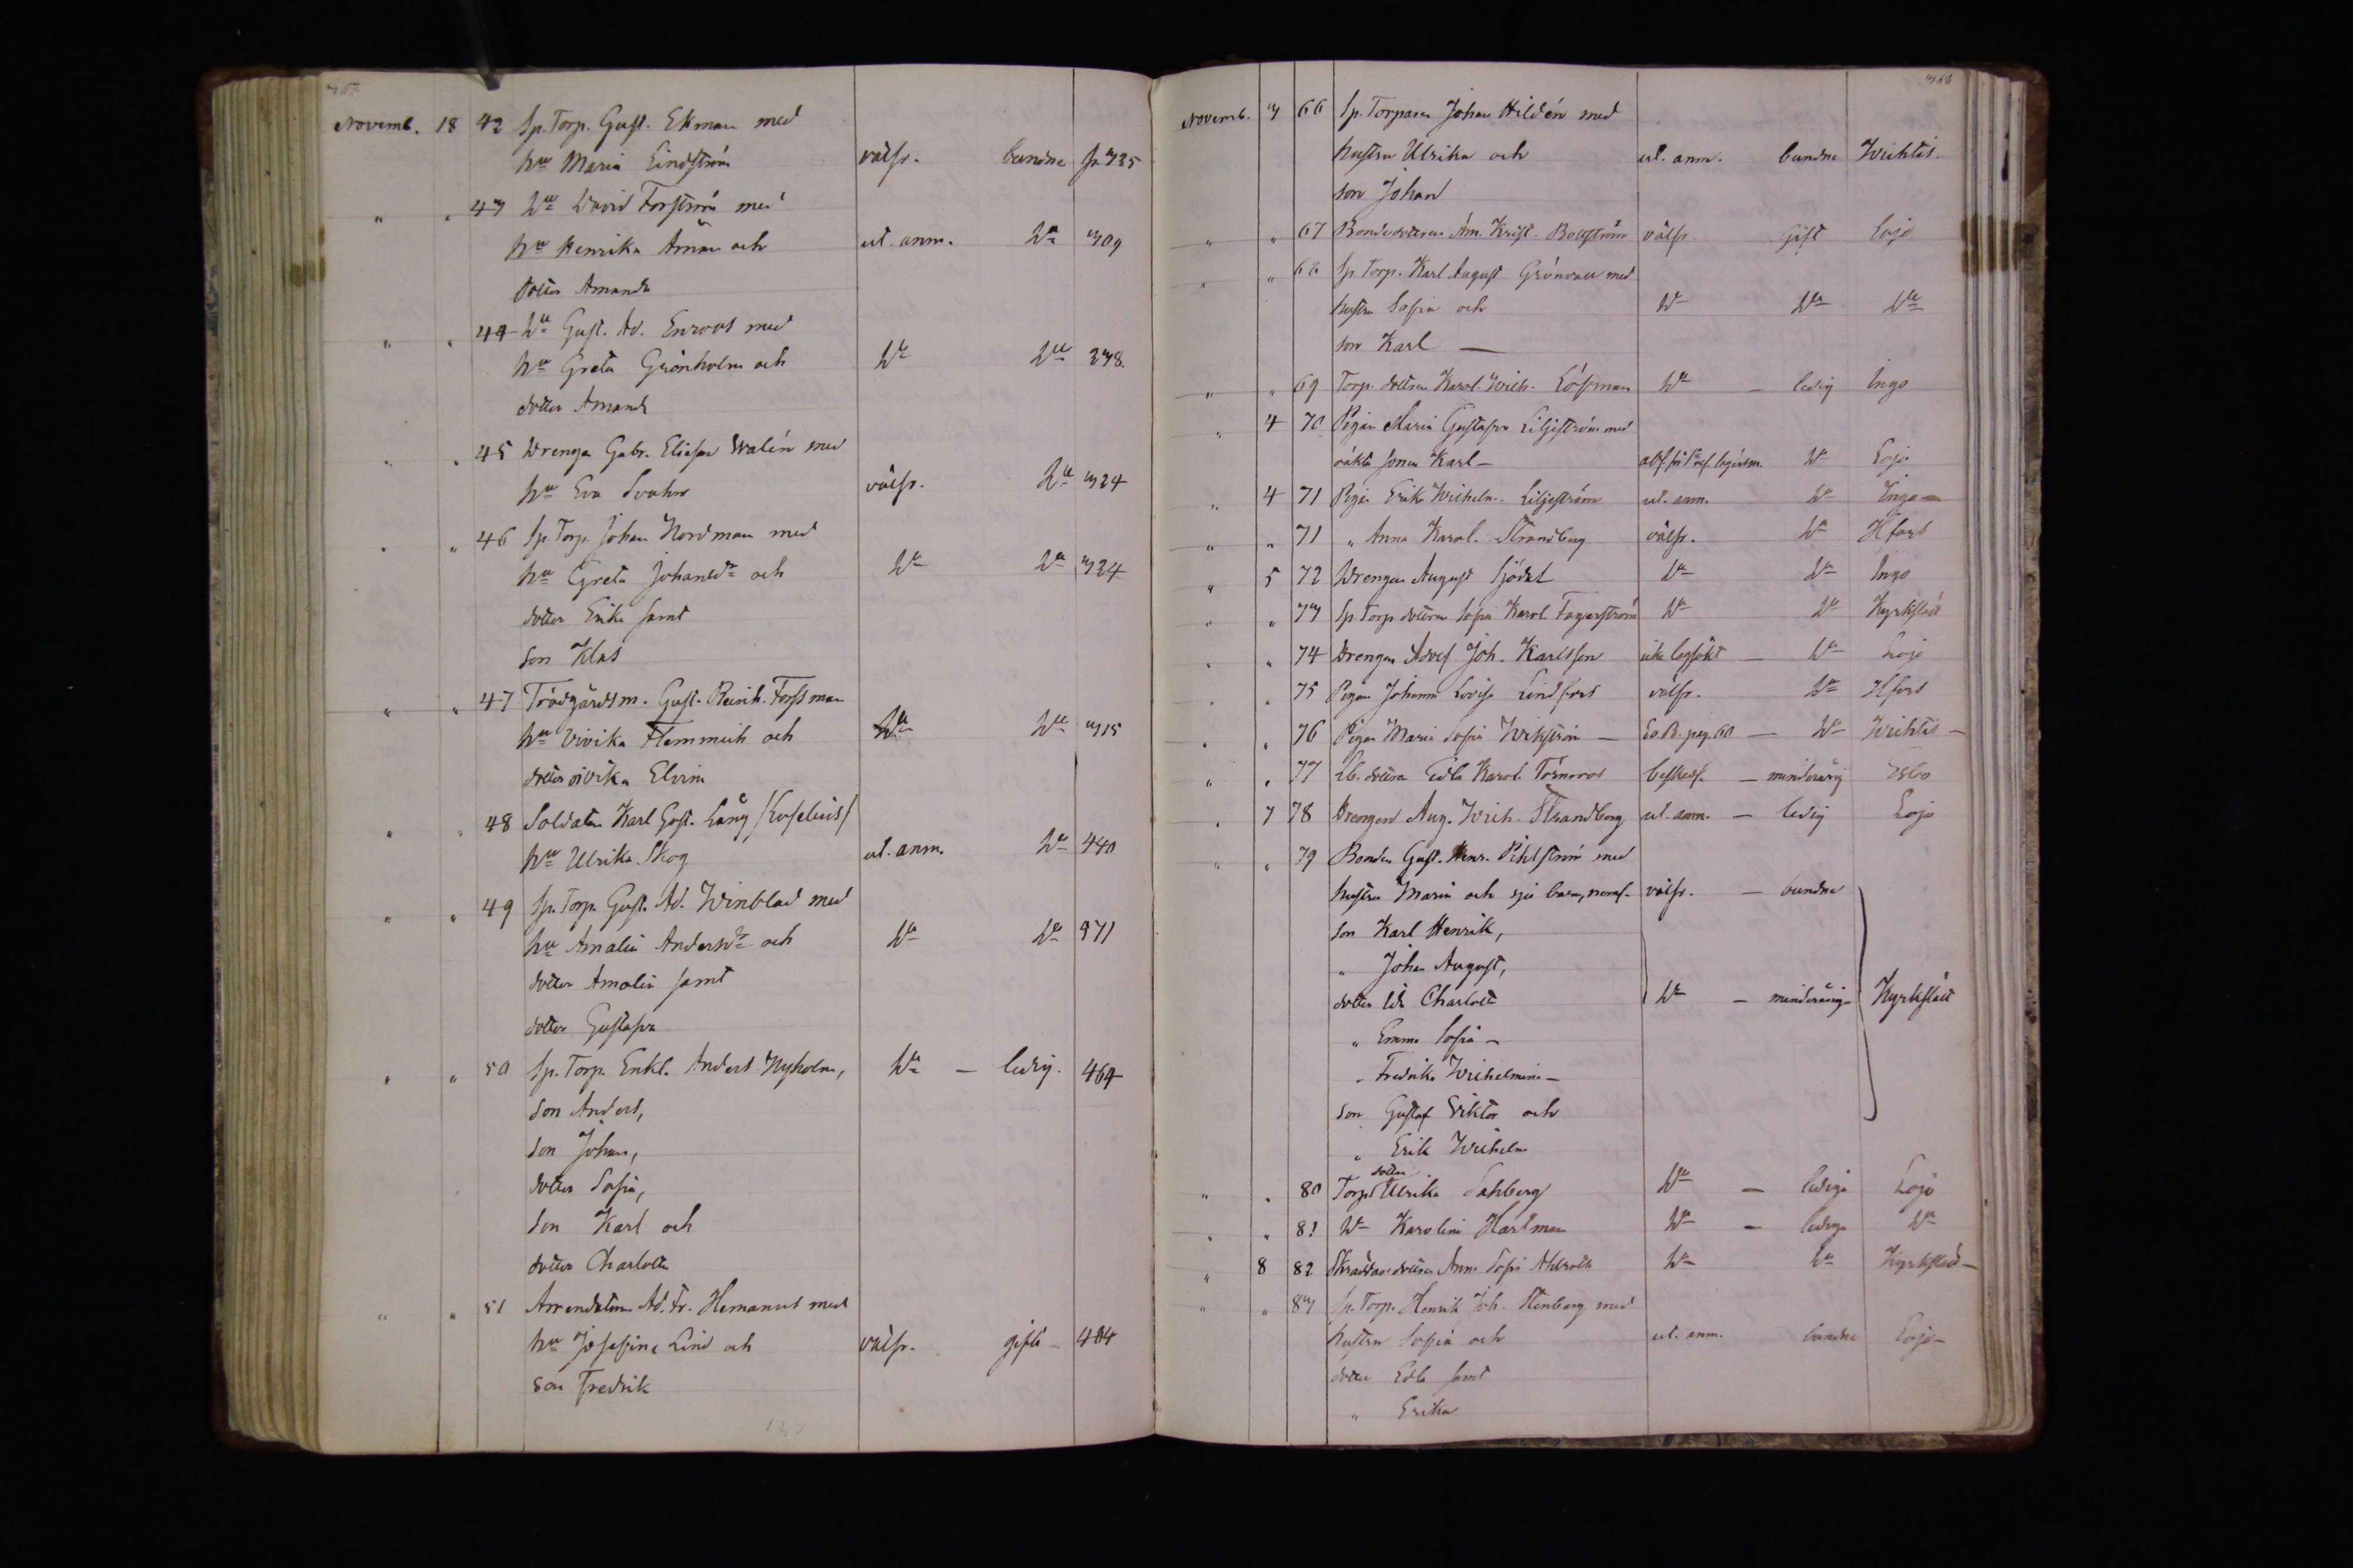 Novemb. 18 42 Sp. Torp. Gust. Ekman med
hu Maria Lindström välfr. bundne p. 325
" " 43 Do David Forström med
hu Henrika Åman och ut. anm. Do 309
dotter Amanda
" " 44 Do Gust. Ad. Enroos med
hu Greta Grönholm och Do Do 338.
dotter Amanda
" " 45 Drengen Gabr. Eliasson Walén med
hu Eva välfr. Do 324
" " 46 Sp. Torp. Johan Nordman med
hu Greta Johansdr och Do Do 324
dotter Erika samt
son Klas
" " 47 Trädgårdsm. Gust. Reinh. Forssman
hu Vivika Flemmich och Do Do 315
dotter Vivika Elvira
" " 48 Soldaten Karl Gust. Lång /Kuselius/
hu Ulrika Skog ut. anm. Do 440
" " 49 Sp. Torp. Gust. Ad. Winblad med
hu Amalia Andersdr och Do Do 571
dotter Amalia samt
dotter Gustafva
" " 50 Sp. Torp. Enkl. Anders Nyholm, Do — ledig. 464
son Anders,
son Johan,
dotter Sofia,
son Karl och
dotter Charlotta
" " 51 Arrendatorn Ad. Fr. Hemanus med
hu Josefina Lind och välfr. gifta — 484
son Fredrik
368
Novemb. 3 66 Sp. Torparen Johan Hildén med
hustru Ulrika och ut. anm. bundne Wichtis.
son Johan
" " 67 Bondedottren Am. Krist. Boström välfr. Gift Lojo
" " 68 Sp. Torp. Karl August Grönvall med
hustru Sofia och Do Do Do
son Karl —
" " 69 Torp. dottren Karol. Wilh. Löfman Do — ledig Ingo
" 4 70 Pigan Maria Gustafva Liljeström med
oäkta sonen Karl — Do Lojo
" 4 71 Pigan Erika Wilhelm. Liljeström ut. anm. Do Ingo —
" " 71 " Anna Karol. Strandberg välfr. Do Hfors
" 5 72 Drengen August Sjödal Do Do Ingo
" " 73 Sp. Torp. dottren Sofia Karol. Fagerström Do Do Kyrkslätt
" " 74 Drengen Adolf Joh. Karlsson — Do Lojo
" " 75 Pigan Johanna Lovisa Lindfors välfr. Do Hfors
" " 76 Pigan Maria Sofia Wikström — pag. 60 — Do Wichtis —
" " 77 dottren Edla Karol. Törnroos — minderårig Esbo
" 7 78 Drengen Aug. Wilh. Strandberg ut. anm. — ledig Lojo
" " 79 Bonden Gust. Henr. Pihlström med
hustru Maria och sju barn, neml. välfr. — bundne
son Karl Henrik,
" Johan August,
dotter Ida Charlotta Do — minderåriga Kyrkslätt
" Emma Sofia —
" Fredrika Wilhelmina —
son Gustaf Viktor och
" Erik Wilhelm
" " 80 Torp. dotter Ulrika Dahlberg Do — lediga Lojo
" " 81 Do Karolina Hartman Do — lediga Do
" 8 82 Skräddaredottren Anna Sofia Ahlroth Do Do Kyrkslätt —
" " 83 Sp. Torp. Henrik Joh. Stenberg med
hustru Sofia och ut. anm. bundne Lojo —
dotter Edla samt
" Erika